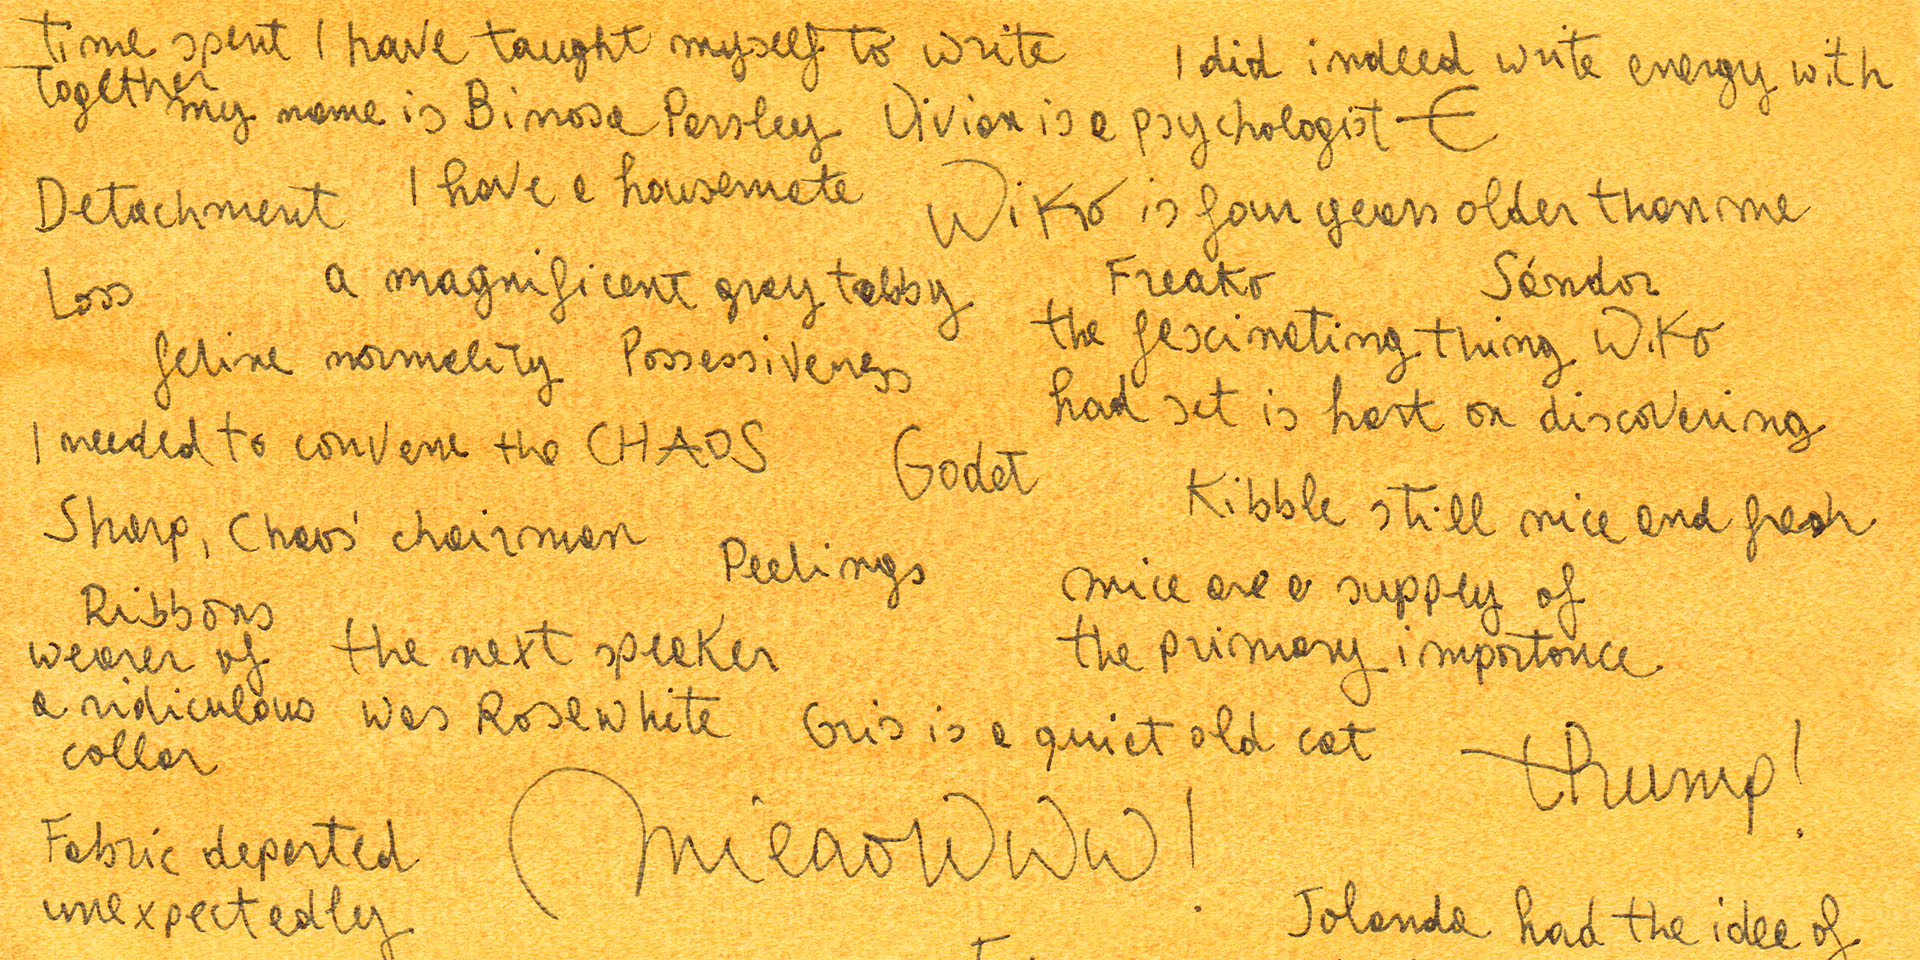 time spent I have taught myself to write
together
I did indeed write energy with
my name is Binosa Parsley
Vivian is a psychologist
Detachment
I have a housemate
Wiko is four years older than me
Loss
a magnificent gray tabby
Freako
Sándor
feline normality
Possessiveness
the fascinating thing Wiko
had set is hart on discovering
I needed to convene the CHAOS
Godet
Kibble still nice and fresh
Sharp, Chaos' chairman
Peelings
mice are a supply of
the primary importance
Ribbons
wearer of
a ridiculous
collar
the next speaker
was Rosewhite
Gris is a quiet old cat
thump!
Fabric departed
unexpectedly
mieaowww!
Jolanda had the idea of